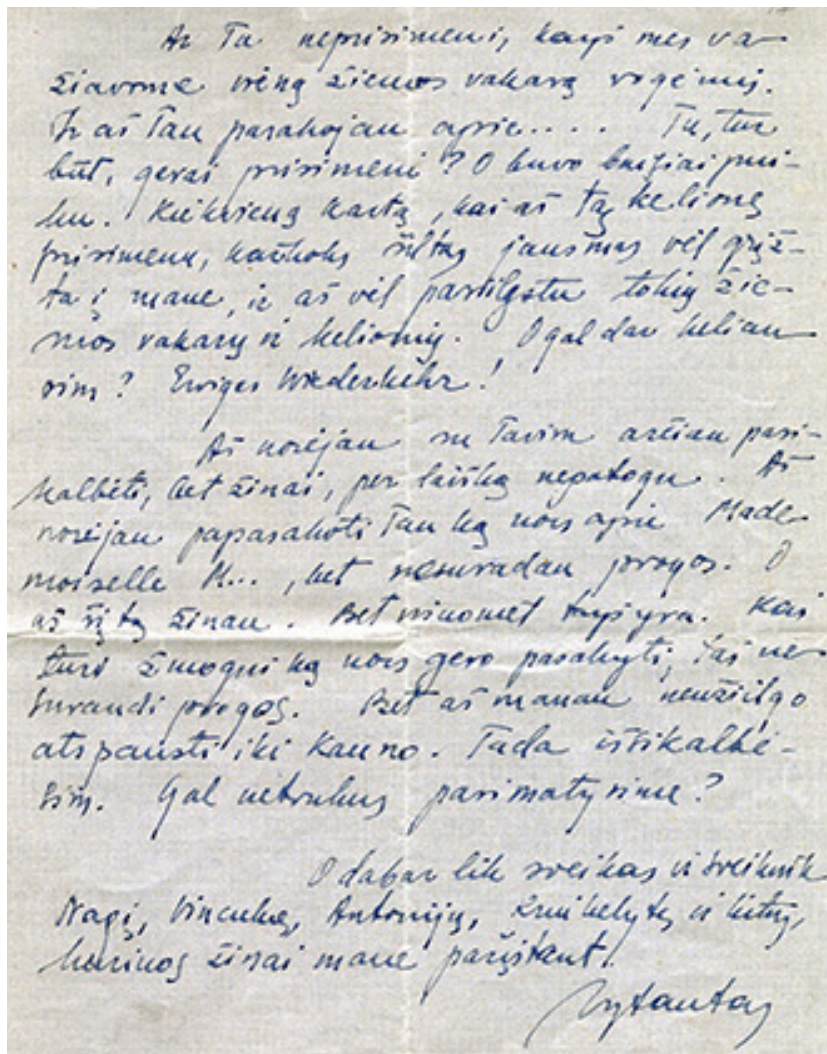 Ar Tu neprisimeni, kaip mes va-
žiavome vieną žiemos vakarą rogėmis.
Ir aš Tau pasakojau apie.... Tu, tur
būt, gerai prisimeni? O buvo baisiai pui-
ku. Kiekvieną kartą, kai aš tą kelionę
prisimenu, kažkoks šiltas jausmas vėl grįž-
ta į mane, ir aš vėl pasiilgstu tokių žie-
mos vakarų ir kelionių. O gal dar keliau-
sim? Ewiges Wiederkehr!
Aš norėjau su Tavim arčiau pasi-
kalbėti, bet žinai, per laišką nepatogu. Aš
norėjau papasakoti Tau ką nors apie Made-
moiselle K..., bet nesuradau progos. O
aš šį tą žinau. Bet visuomet taip yra. Kai
turi žmogui ką nors gero pasakyti, tai ne-
surandi progos. Bet aš manau neužilgo
atspausti iki Kauno. Tada išsikalbė-
sim. Gal netrukus pasimatysime?
O dabar lik sveikas ir sveikink
Nagį, Vincuką, Antoniją, ir kitus,
kuriuos žinai mane pažįstant.
Vytautas